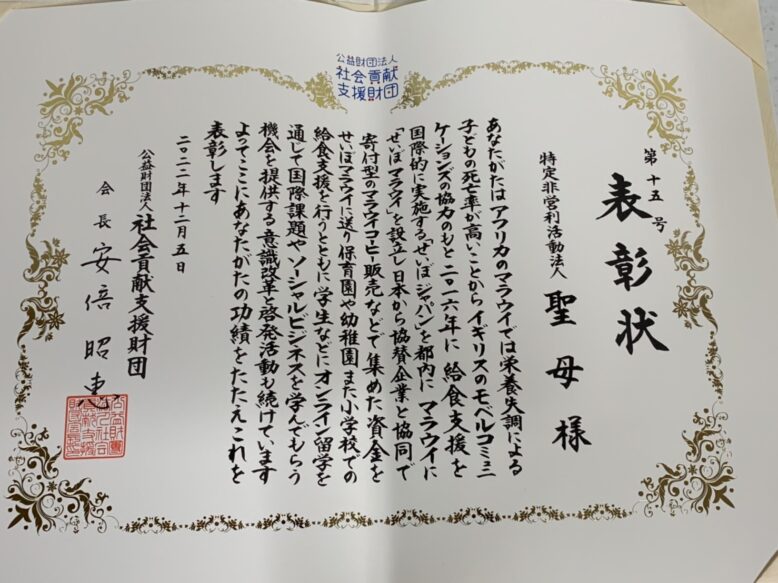 公益財団法人
社会貢献
支援財団
第十五号
表彰状
特定非営利活動法人
聖母様
あなたがたはアフリカのマラウイでは栄養失調による
子どもの死亡率が高いことからイギリスのモベルコミュニ
ケーションズの協力のもと二〇一六年に給食支援を
国際的に実施する「せいぼジャパン」を都内に マラウイに
「せいぼマラウイ」を設立し日本から協賛企業と協同で
寄付型のマラウイコーヒー販売などで集めた資金を
せいぼマラウイに送り保育園や幼稚園また小学校での
給食支援を行うとともに学生などにオンライン留学を
通じて国際課題やソーシャルビジネスを学んでもらう
機会を提供する意識改革と啓発活動も続けています
よってここにあなたがたの功績をたたえこれを
表彰します
二〇二二年十二月五日
公益財団法人 社会貢献支援財団
会長 安倍昭恵